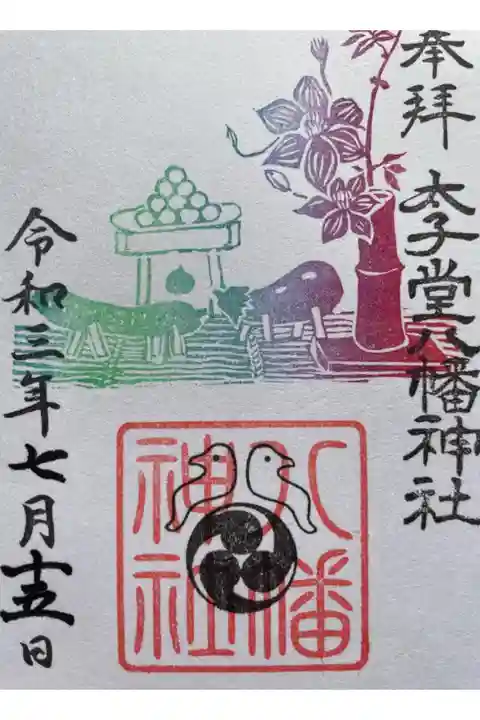 奉拝
太子堂八幡神社
八幡
神社
令和三年七月十五日